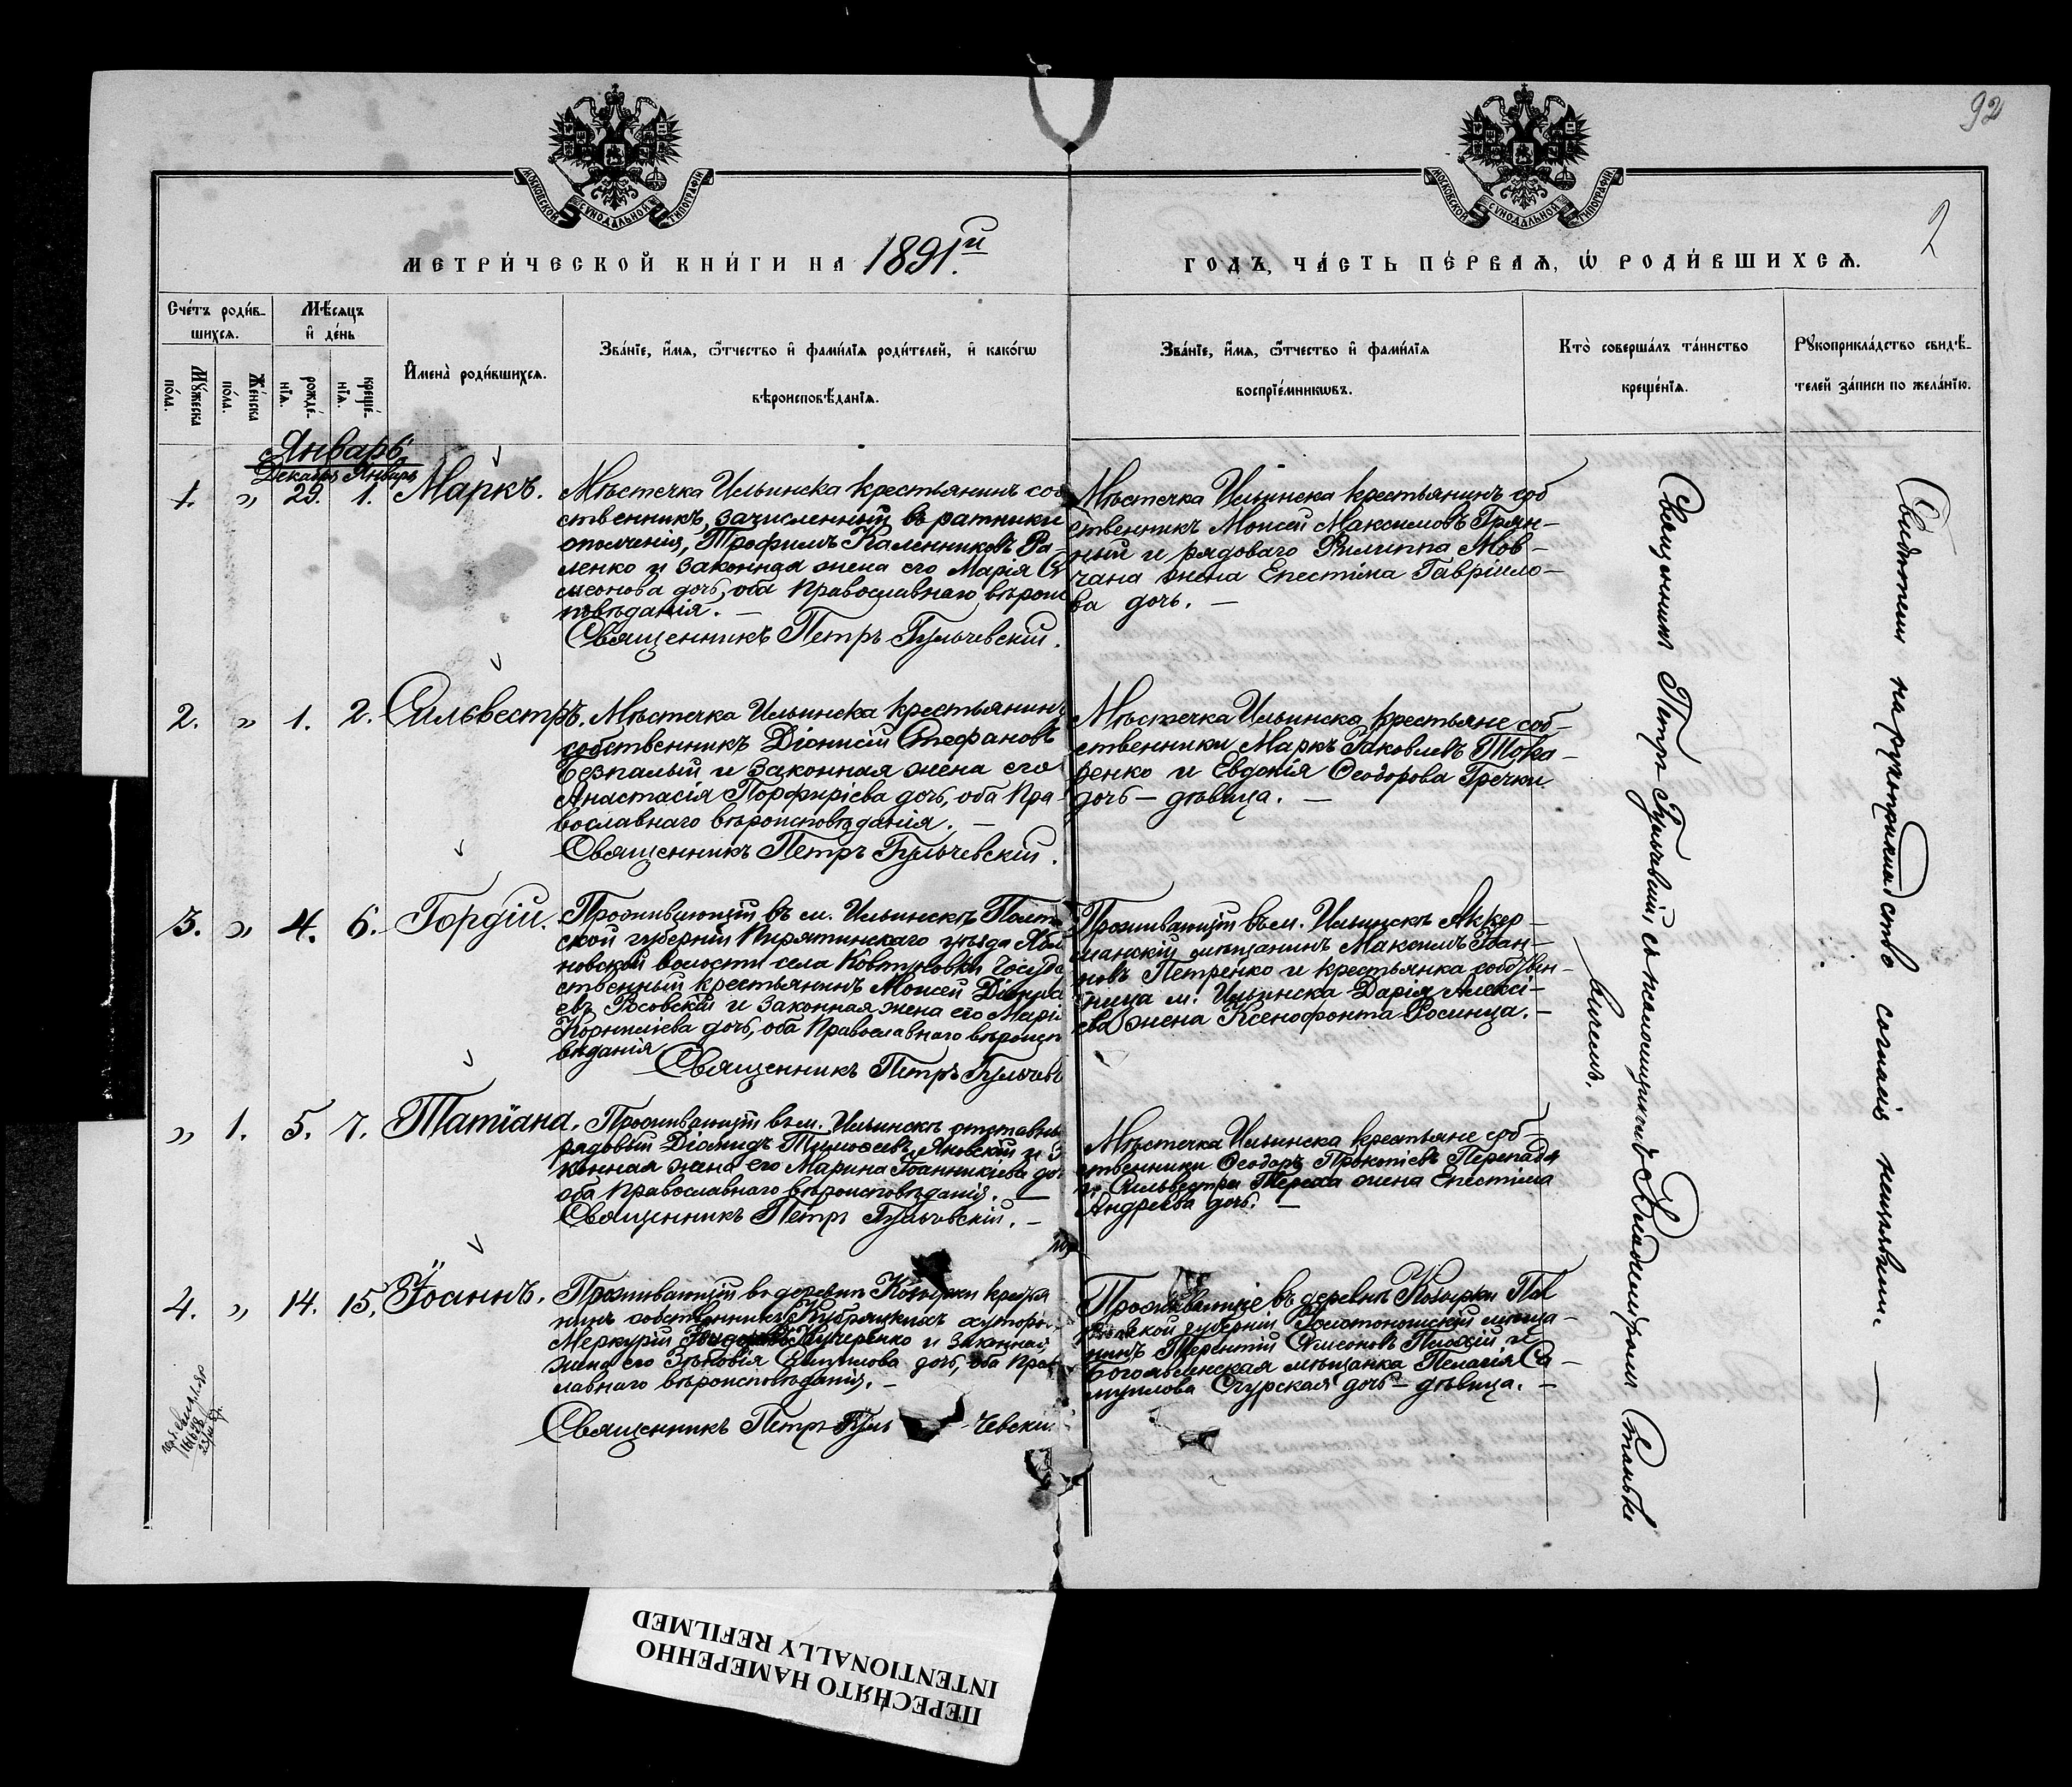 92
2
МОСКОВСКОЙ СѴНОДАЛЬНОЙ ТИПОГРАФІИ
МОСКОВСКОЙ СѴНОДАЛЬНОЙ ТИПОГРАФІИ
МЕТРИ́ЧЕСКОЙ КНИ́ГИ НА 1891.й
ГОДЪ, ЧА́СТЬ ПЕ́РВАѦ, Ѡ҆ РОДИ́ВШИХСѦ.
Сче́тъ роди́в-
шихсѧ.
Мꙋ́жеска
по́ла.
Же́нска
по́ла.
Мѣ́сѧцъ
и҆ де́нь
рожде́-
нїѧ.
креще́-
нїѧ.
И҆мена̀ роди́вшихсѧ.
Зва́нїе, и҆́мѧ, ѻ҆́тчество и҆ фами́лїѧ роди́телей, и҆ како́гѡ
вѣроисповѣ́данїѧ.
Зва́нїе, и҆́мѧ, ѻ҆́тчество и҆ фами́лїѧ
воспрїе́мникѡвъ.
Кто̀ соверша́лъ та́инство
креще́нїѧ.
Рꙋкоприкла́дство свидѣ́-
телей за́писи по жела́нїю.
Январь
Декабрь Январь
1. " 29. 1. Маркъ.
Мѣстечка Ильинска крестьянинъ соб
ственникъ, зачисленный въ ратники
ополченія, Трофимъ Каленниковъ Ра-
ленко и законная жена его Марія
сисонова дочь, оба Православнаго вѣроис
повѣданія. —
Священникъ Петръ Гульчевскій.
Мѣстечка Ильинска крестьянинъ соб
ственникъ Моисей Максимовъ Грян-
ный и рядоваго Филиппа Мов-
чана жена Епестіма Гавріило-
ва дочь. —
2. " 1. 2. Сильвестръ.
Мѣстечка Ильинска крестьянинъ
собственникъ Діонисій Стефановъ
Безпалый и законная жена его
Анастасія Порфиріева дочь, оба Пра-
вославнаго вѣроисповѣданія. —
Священникъ Петръ Гульчевскій.
Мѣстечка Ильинска крестьяне соб-
ственники Маркъ Яковлевъ Тока-
ренко и Евдокія Ѳеодорова Гречки
дочь — дѣвица. —
3. " 4. 6. Гордій.
Проживающій въ м. Ильинскѣ Полта
ской губерніи Пирятинскаго уѣзда Ябл
новской волости села Ковтуновки Госуда
ственный крестьянинъ Моисей
евъ Косовскій и законная жена его Марі
Корниліева дочь, оба Православнаго вѣроисп
вѣданія
Священникъ Петръ Гульчев
Проживающій въ м. Ильинскѣ Аккер-
манскій мѣщанинъ Максимъ Іоан-
новъ Петренко и крестьянка собствен-
ница м. Ильинска Дарія Алексі-
ева жена Ксенофонта Росинца. —
" 1. 5. 7. Татіана.
Проживающій въ м. Ильинскѣ отставны
рядовый Діомидъ Тимоѳеевъ Яновскій и з
конная жена его Марина Іоанникіева до
оба Православнаго вѣроисповѣданія. —
Священникъ Петръ Гульчевскій. —
Мѣстечка Ильинска крестьяне соб-
ственники Ѳеодоръ Прокопіевъ Перепадя
и Сильвестра Тереха жена Епестіма
Андреева дочь. —
4. " 14. 15. Іоаннъ.
Проживающій въ деревнѣ Козырки крестья
нинъ собственникъ Кубряцкихъ хуторо
Меркурій Кучеренко и законная
жена его Зѣновія дочь, оба Прав
лавнаго вѣроисповѣданія. —
Священникъ Петръ Гуль - чевскій.
Проживающіе въ деревнѣ Козырки Пол
ской губерніи Золотоношскій мѣща-
нинъ Терентій Самсоновъ и
Богоявленская мѣщанка Пелагія Са-
муилова Сгурская дочь — дѣвица. —
Священникъ Петръ Гульчевскій, съ псаломщикомъ Владиміромъ
вичемъ.
Свидѣтели на рукоприкладство согласія неизъявили. —
ПЕРЕСНЯТО НАМЕРЕННО
INTENTIONALLY REFILMED